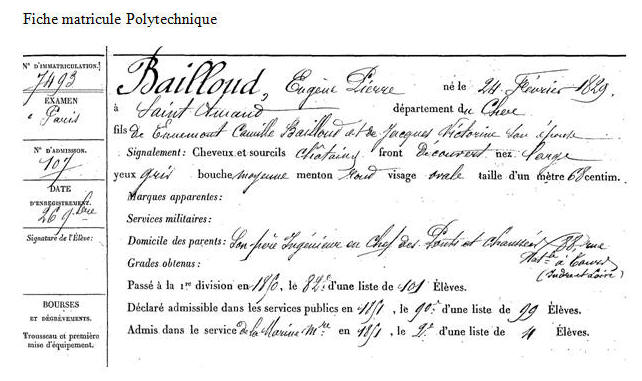 Fiche matricule Polytechnique
N° D'IMMATRICULATION.
7493
EXAMEN
Paris
N° D'ADMISSION.
107
DATE
D'ENREGISTREMENT.
26 9bre
Signature de l'Élève:
BOURSES
ET DÉGRÈVEMENTS.
Trousseau et première
mise d'équipement.
Bailloud, Eugène Pierre né le 24 Février 1829
à Saint Amand département du Cher
fils de Ennemont Camille Bailloud et de Jacques Victorine son épouse
Signalement: Cheveux et sourcils châtains front Découvert nez large
yeux gris bouche moyenne menton rond visage ovale taille d'un mètre 68 centim.
Marques apparentes:
Services militaires:
Domicile des parents: Son père Ingénieur en Chef des Ponts et Chaussées 88, rue
à Tours
Grades obtenus: (Indre et Loire)
Passé à la 1re division en 1850, le 82e d'une liste de 101 Élèves.
Déclaré admissible dans les services publics en 1851, le 90e d'une liste de 99 Élèves.
Admis dans le service de la Marine en 1851, le 2e d'une liste de 4 Élèves.